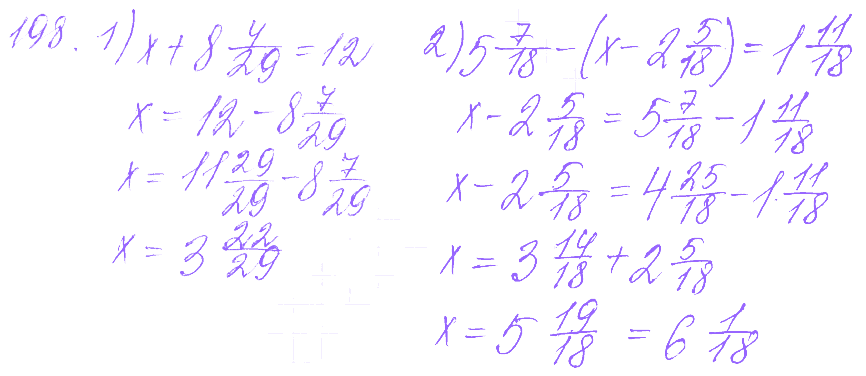 198. 1) x + 8 7/29 = 12
x = 12 - 8 7/29
x = 11 29/29 - 8 7/29
x = 3 22/29
2) 5 7/18 - (x - 2 5/18) = 1 11/18
x - 2 5/18 = 5 7/18 - 1 11/18
x - 2 5/18 = 4 25/18 - 1 11/18
x = 3 14/18 + 2 5/18
x = 5 19/18 = 6 1/18